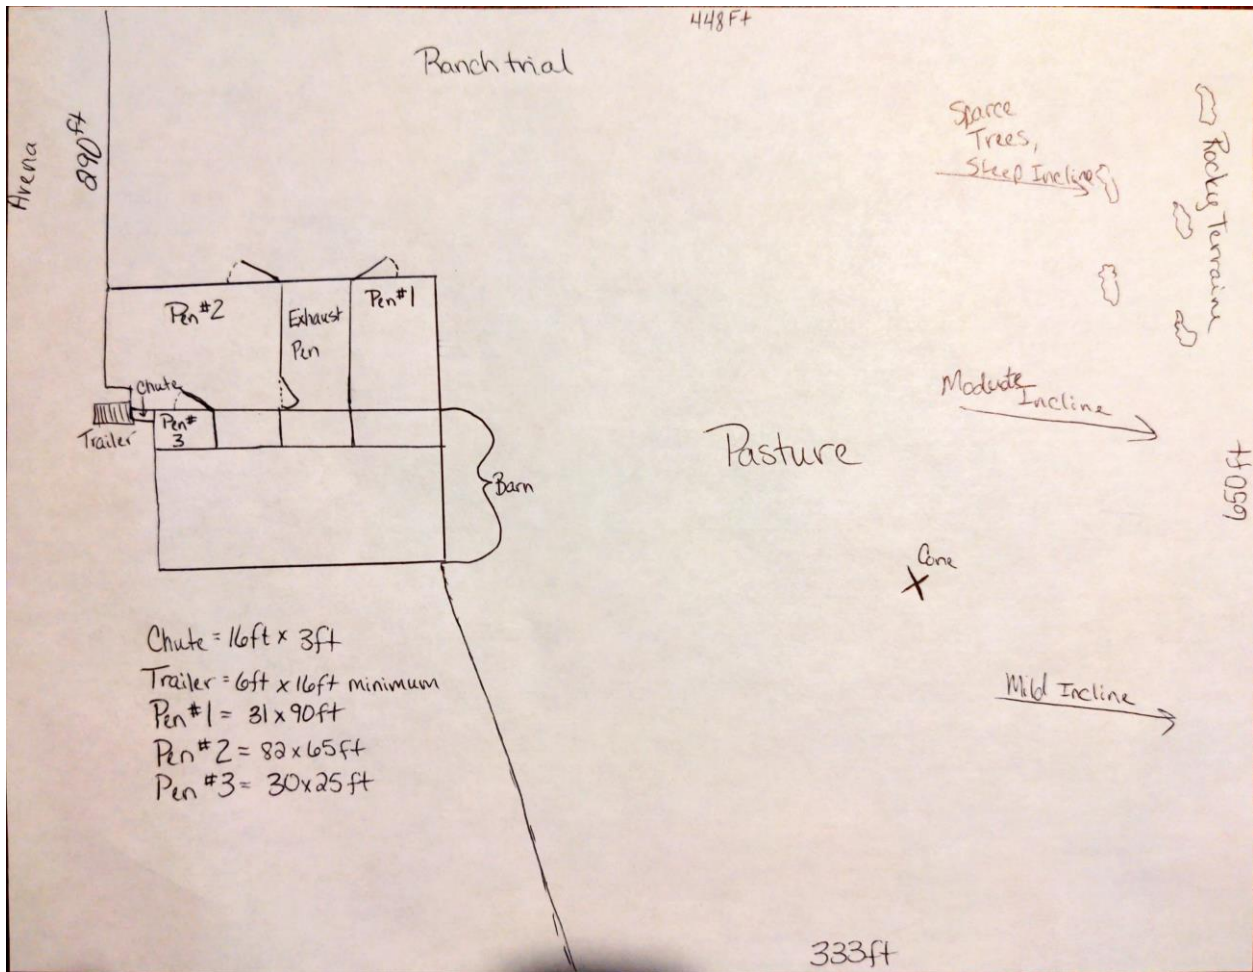 448Ft
Ranch trial
Arena
290ft
Sparce
Trees,
Steep Incline
Rocky Terraine
Pen #2
Exhaust
Pen
Pen #1
Chute
Trailer
Pen #
3
Barn
Pasture
Incline
650ft
Cone
Mild Incline
Chute = 16ft x 3ft
Trailer = 6ft x 16ft minimum
Pen #1 = 31 x 90ft
Pen #2 = 82 x 65ft
Pen #3 = 30 x 25ft
333ft